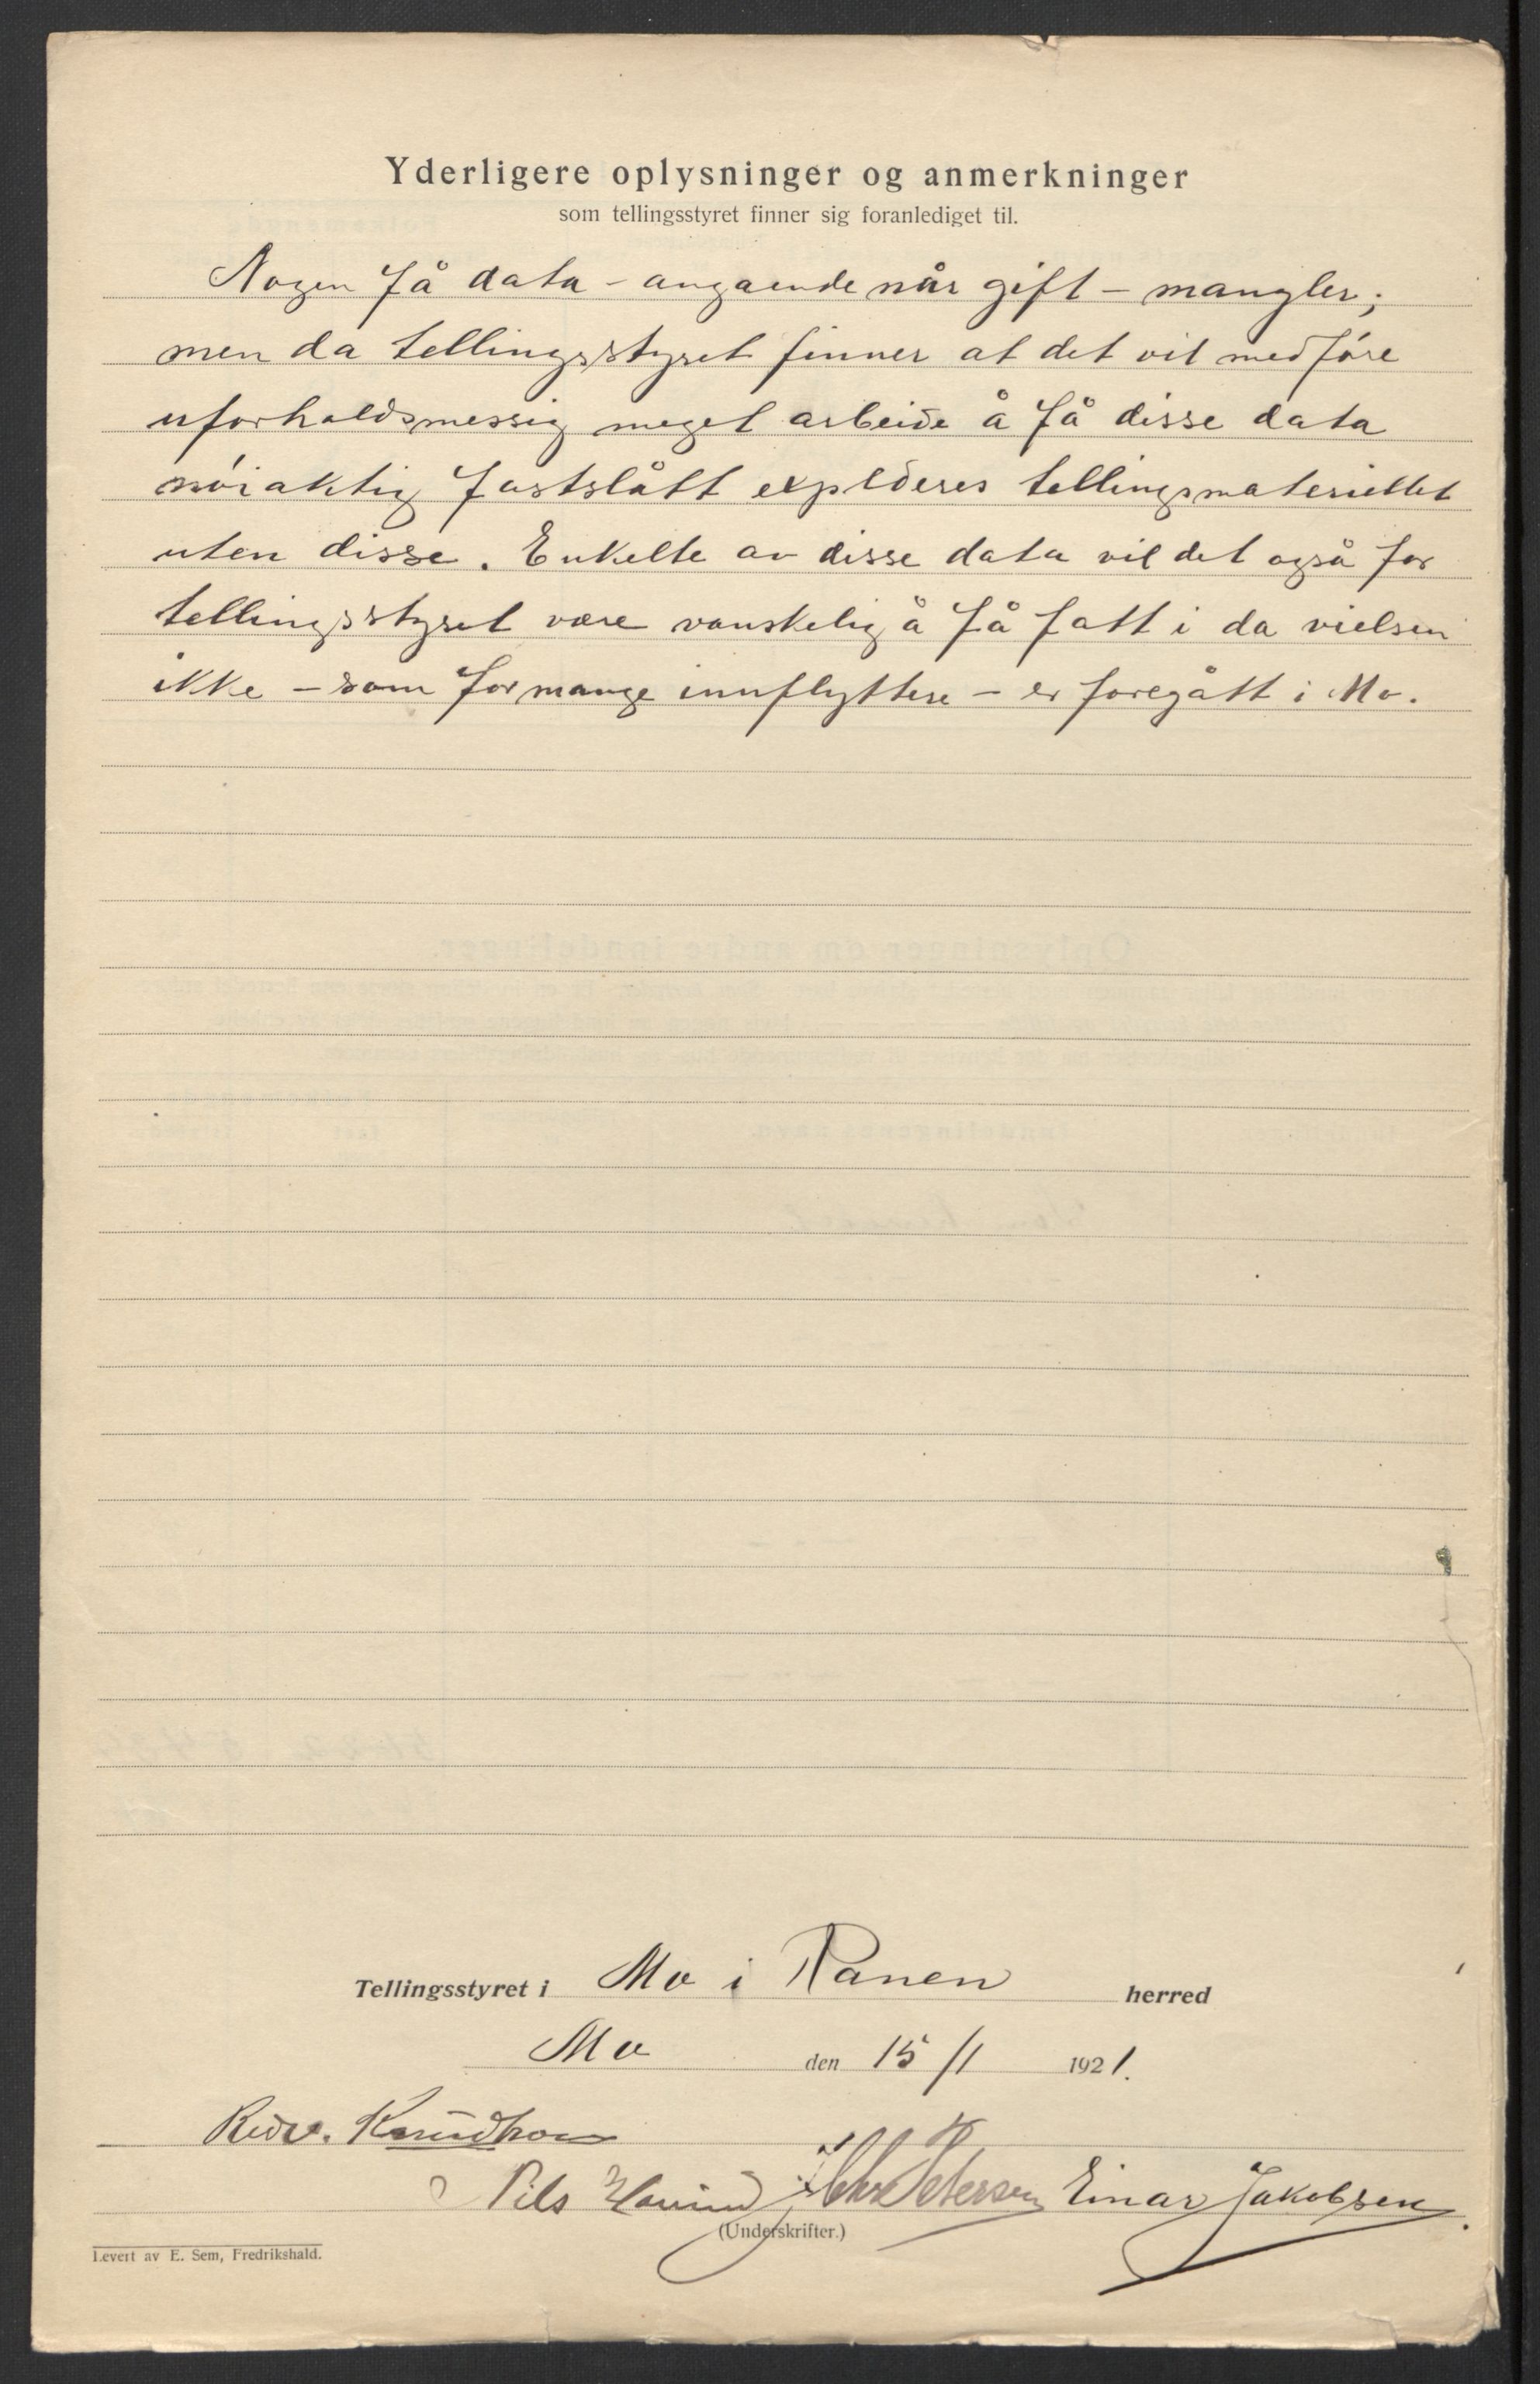 Yderligere oplysninger og anmerkninger
som tellingsstyret finner sig foranlediget til.
Nogen få data - angaende når gift - mangler;
men da tellingsstyret finner at det vil medføre
uforholdsmessig meget arbeide å få disse data
nøiaktig fastslått expideres tellingsmateriellet
uten disse. Enkelte av disse data vil det også for
tellingsstyret være vanskelig å få fatt i da vielsen
ikke - som for mange innflyttere - er foregått i Mo.
Tellingsstyret i Mo i Ranen herred
Mo den 15/1 1921.
Nils Petersen Einar Jakobsen.
(Underskrifter.)
Levert av E. Sem, Fredrikshald.